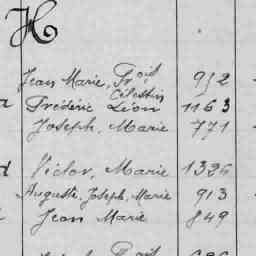 H
Jean Marie, Fçois 912
Célestin
Frédéric Léon 1163
Joseph, Marie 771
Victor, Marie 1336
Auguste, Joseph, Marie 913
Jean Marie 849